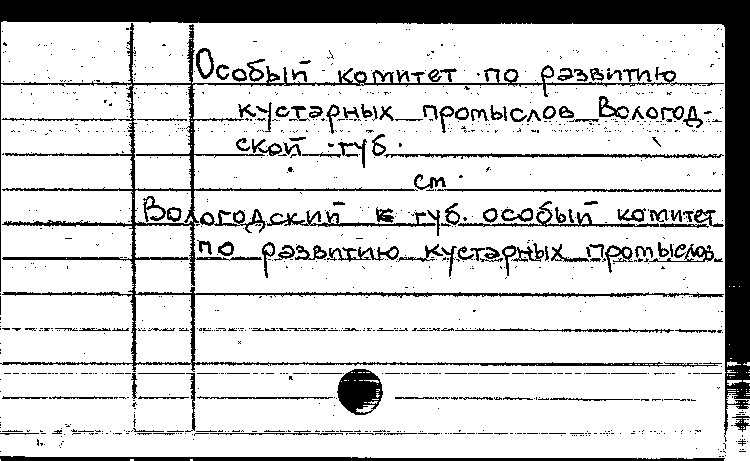 Особый комитет по развитию
кустарных промыслов Вологод-
ской губ.
см.
Вологодский губ. особый комитет
по развитию кустарных промыслов